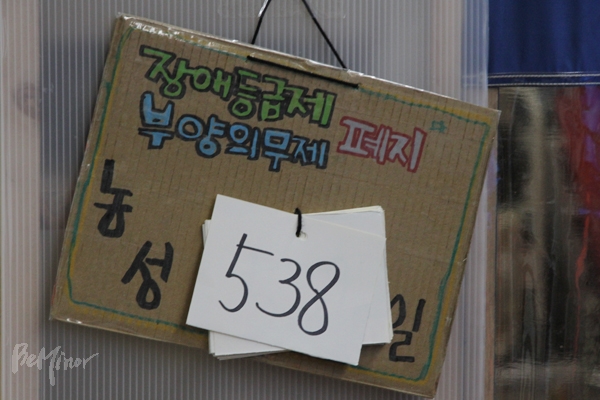 장애등급제
부양의무제 폐지
농성 538 일
BeMinor